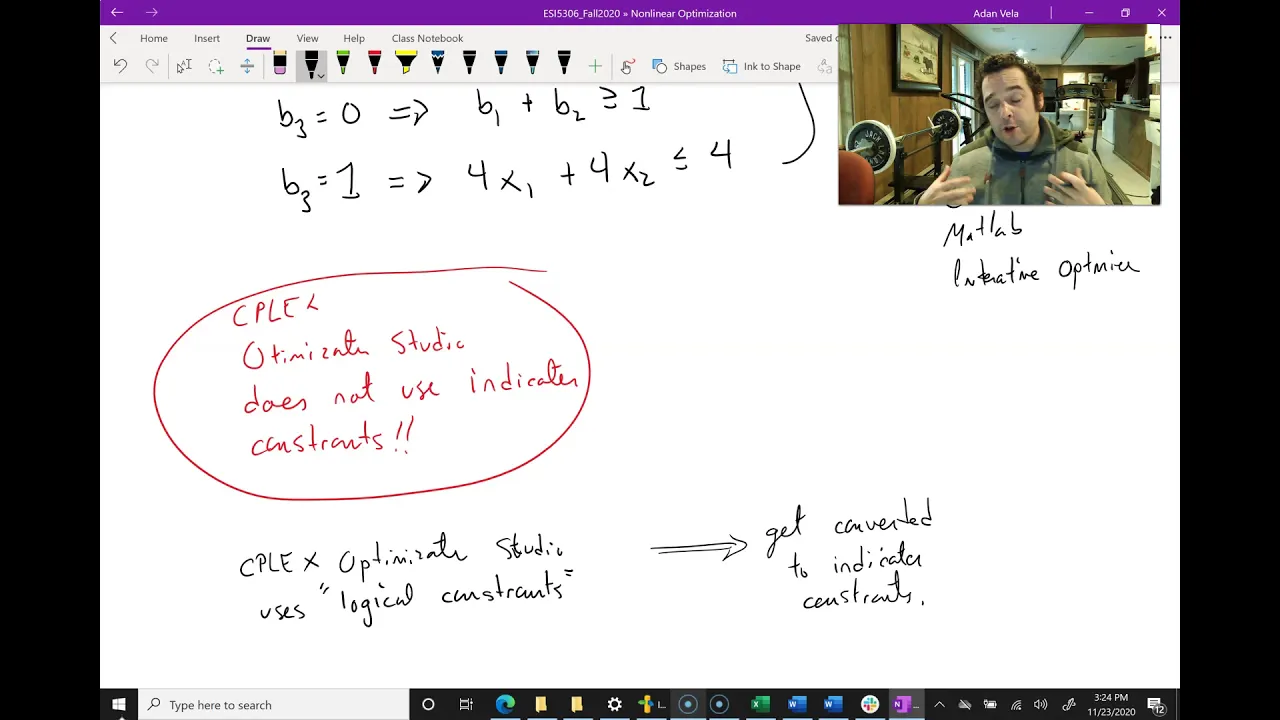 ESI5306_Fall2020 » Nonlinear Optimization
Adan Vela
Home Insert Draw View Help Class Notebook
Saved
Shapes
Ink to Shape
b3 = 0 => b1 + b2 ≥ 1
b3 = 1 => 4x1 + 4x2 ≤ 4
Matlab
Interative Optmier
CPLEX
Otimizatn Studio
does not use indicator
constrants!!
CPLEX Optimizatn Studio
uses "logical constrants"
get converted
to indicator
constrants.
Type here to search
3:24 PM
11/23/2020
12